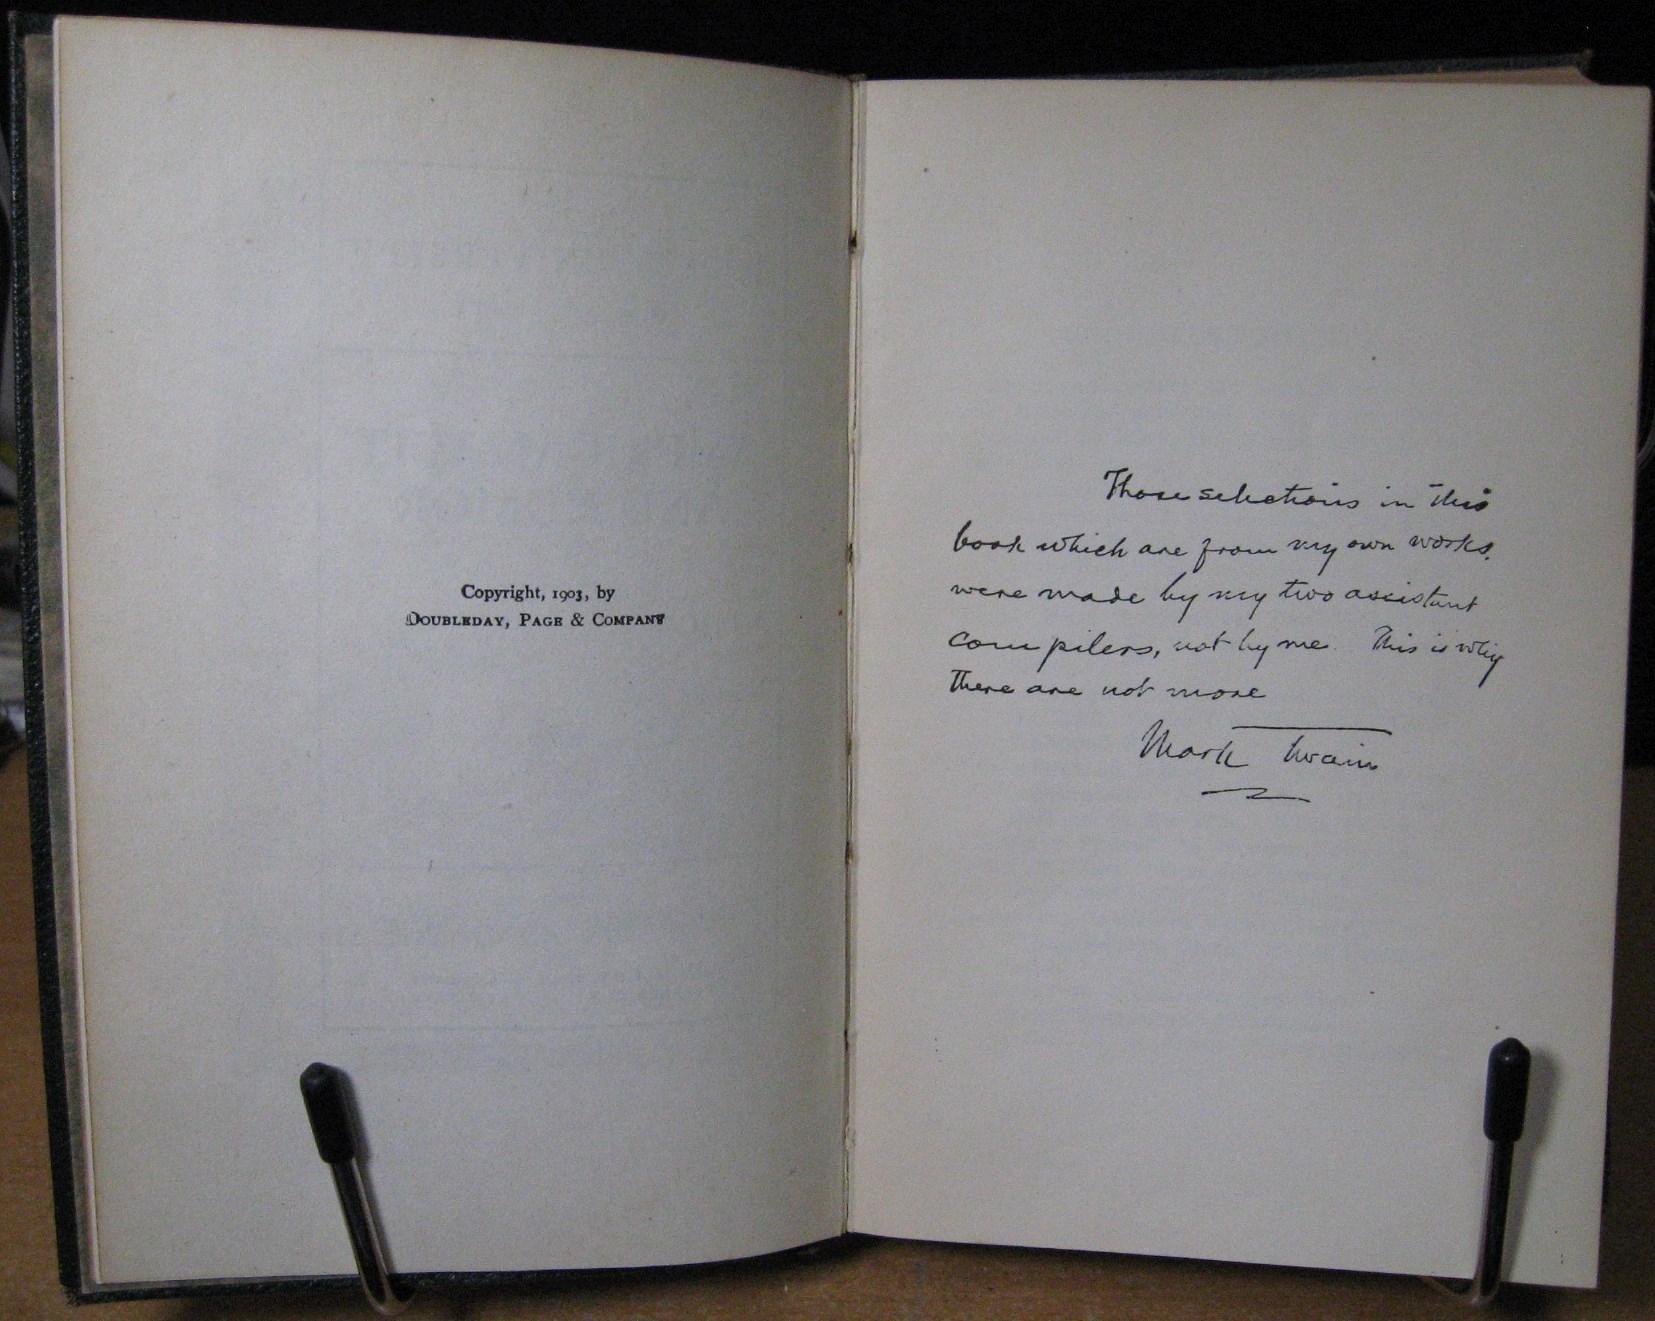 Copyright, 1903, by
DOUBLEDAY, PAGE & COMPANY
Those selections in this
book which are from my own works,
were made by my two assistant
compilers, not by me. This is why
there are not more
Mark Twain